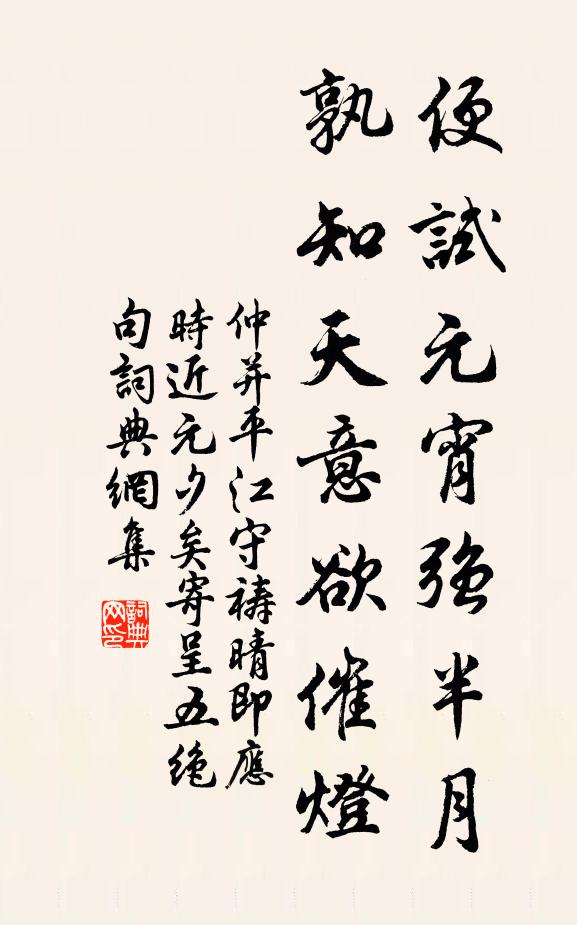 便試元宵強半月
孰知天意欲催燈
仲并平江守禱晴即應
時近元夕矣寄呈五绝
句詞典網集
詞典
网印